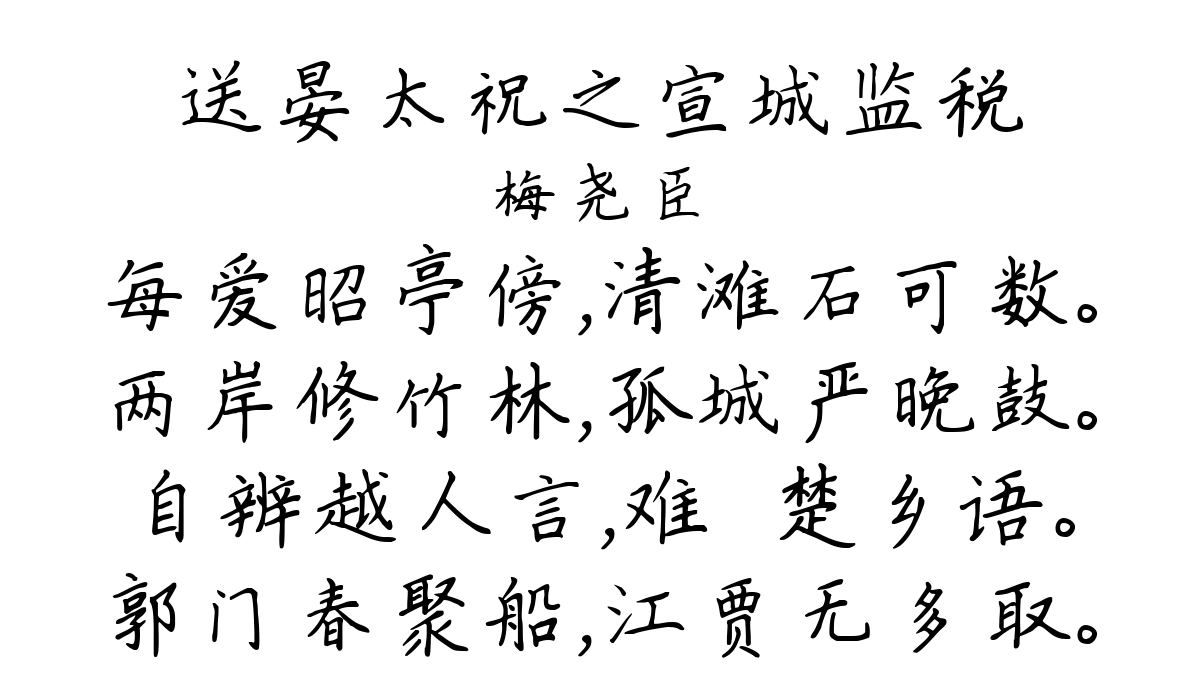 送晏太祝之宣城监税
梅尧臣
每爱昭亭傍,清滩石可数。
两岸修竹林,孤城严晚鼓。
自辨越人言,难 楚乡语。
郭门春聚船,江贾无多取。